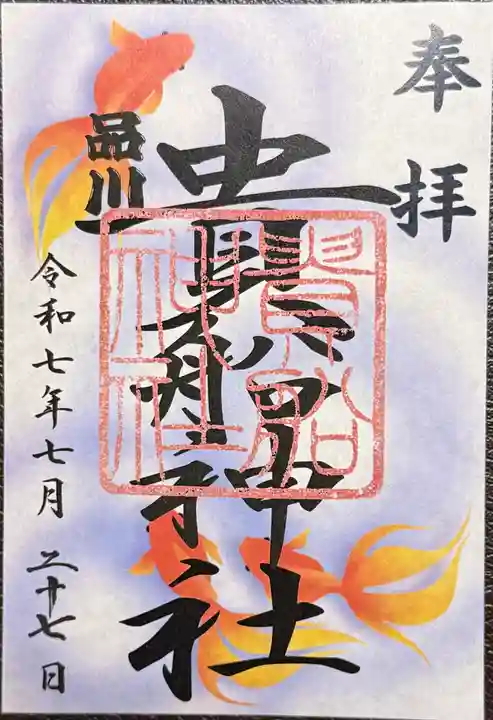 奉拝
品川
貴船神社
貴船神社
令和七年七月二十七日